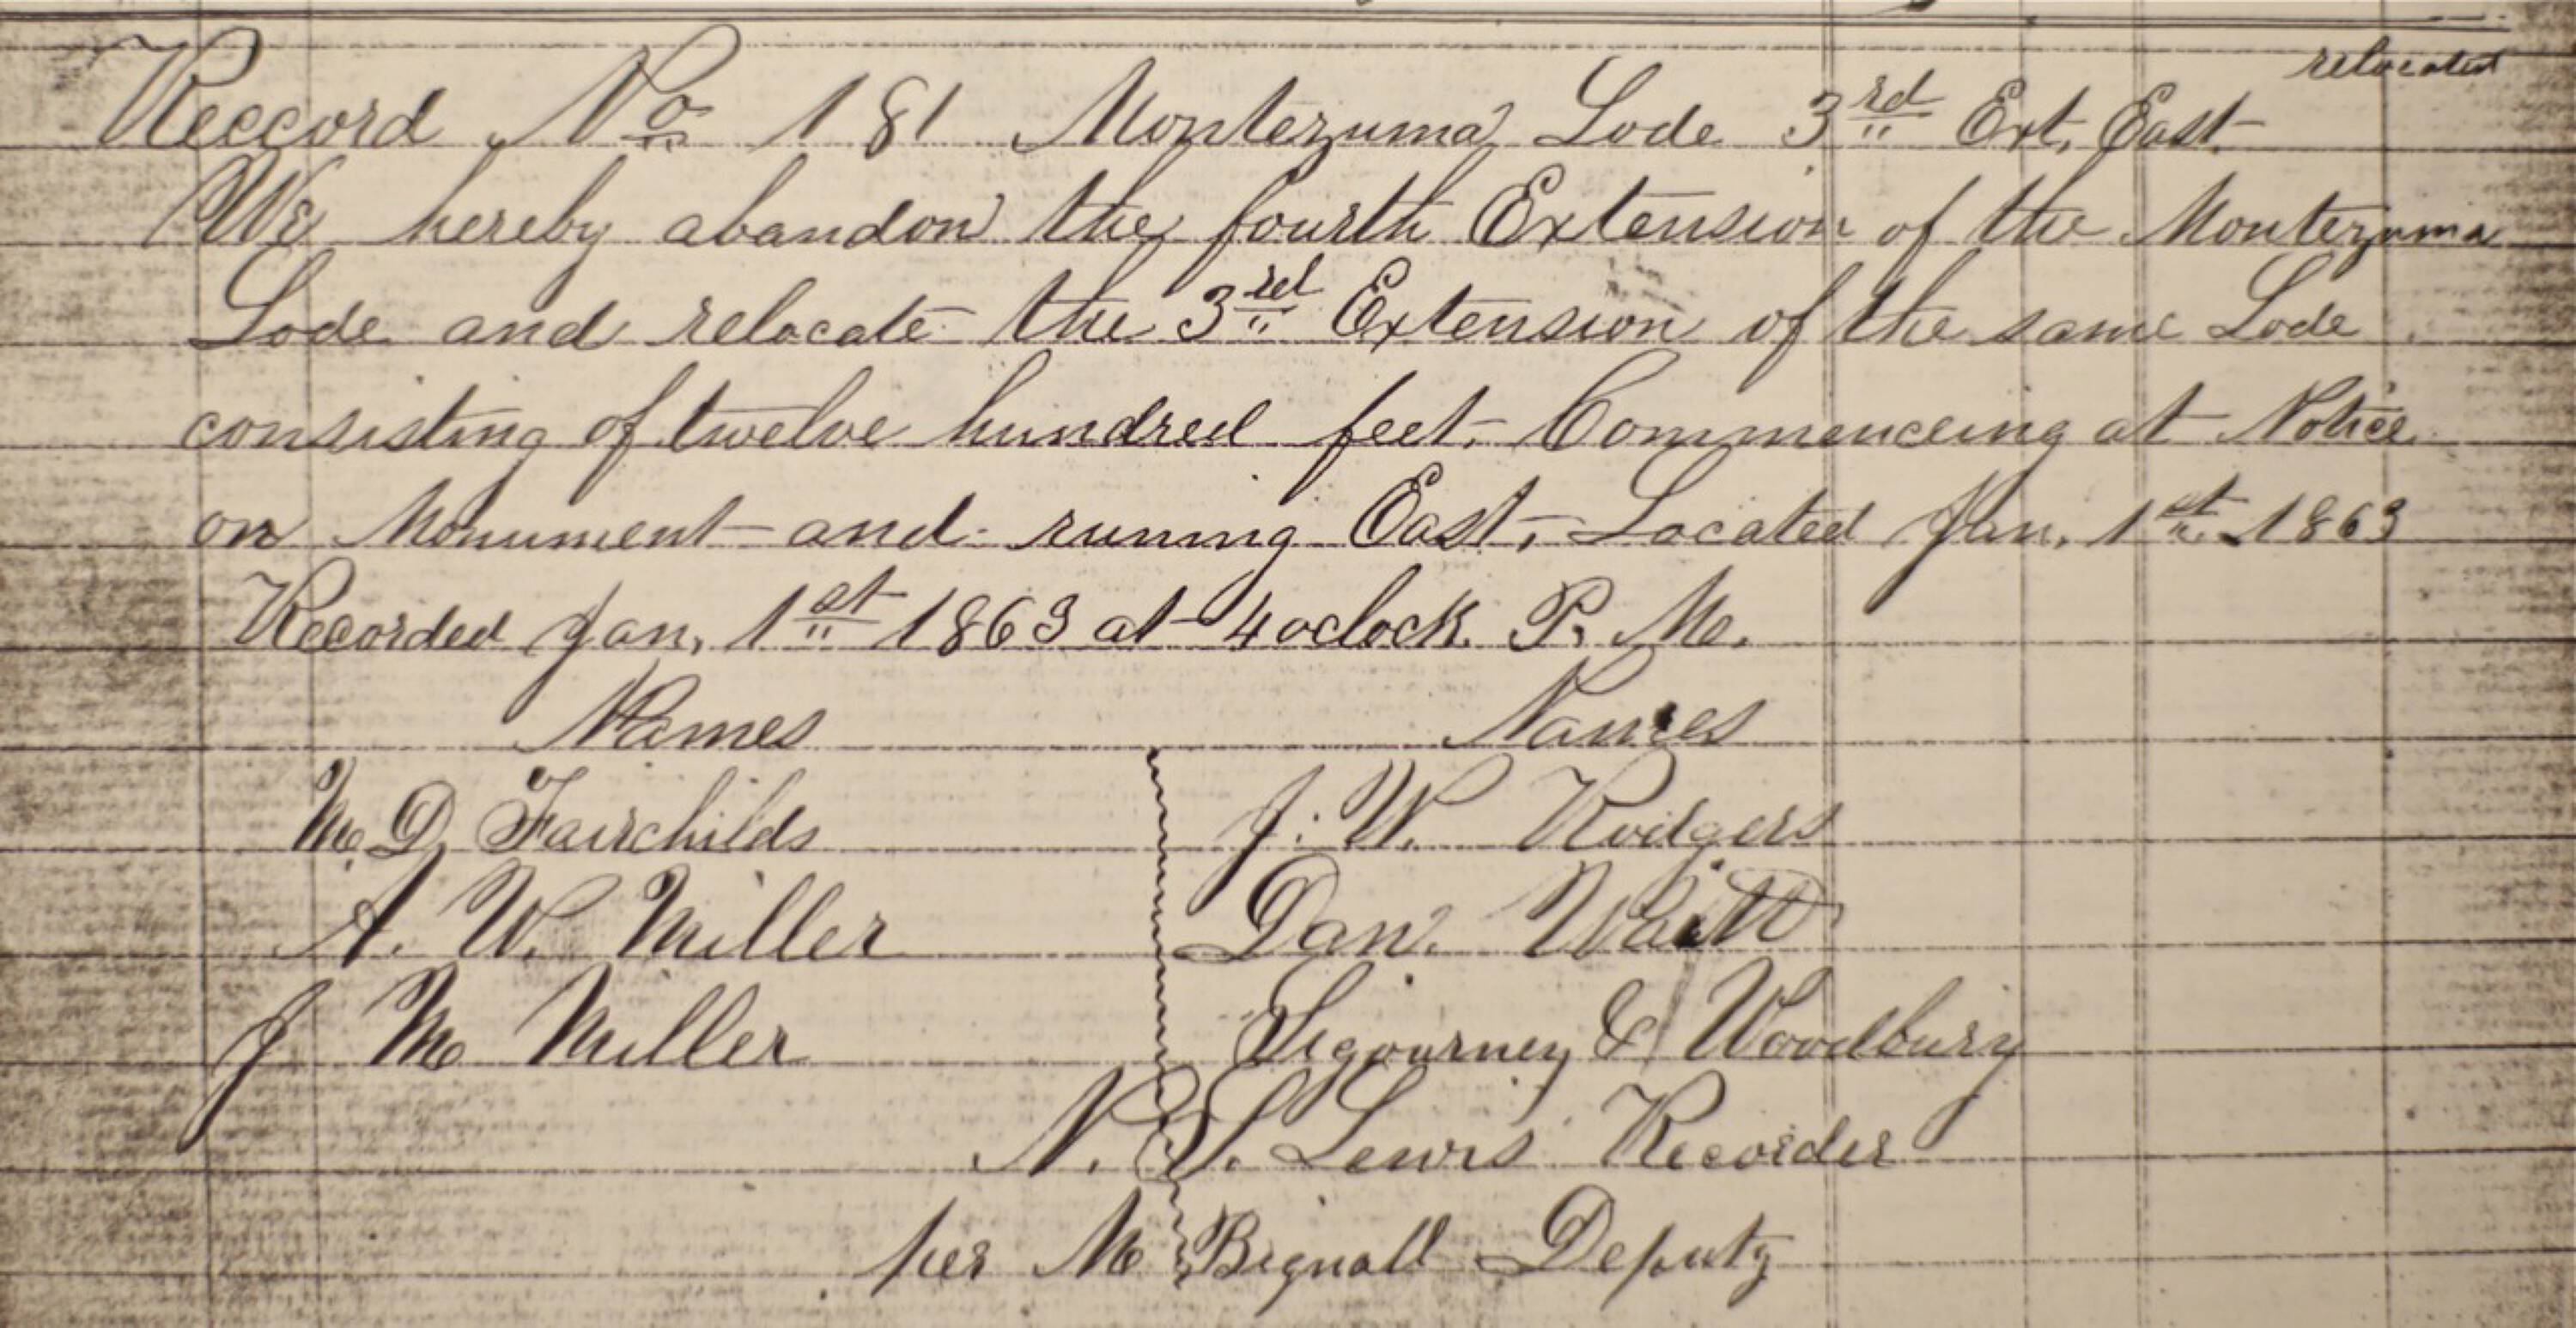 relocated
Reccord No 181 Montezuma Lode 3rd Ext. East
We hereby abandon the fourth Extension of the Montezuma
Lode and relocate the 3rd Extension of the same Lode
consisting of twelve hundred feet. Commenceing at Notice
on Monument and runing East, Located Jan. 1st 1863
Recorded Jan. 1st 1863 at 4 oclock P. M.
Names Names
M. D. Fairchilds J. W. Rodgers
A. W. Miller Dan.
J M Miller Sigourney & Woodbury
N. S. Lewis Recorder
per M Bignall Deputy